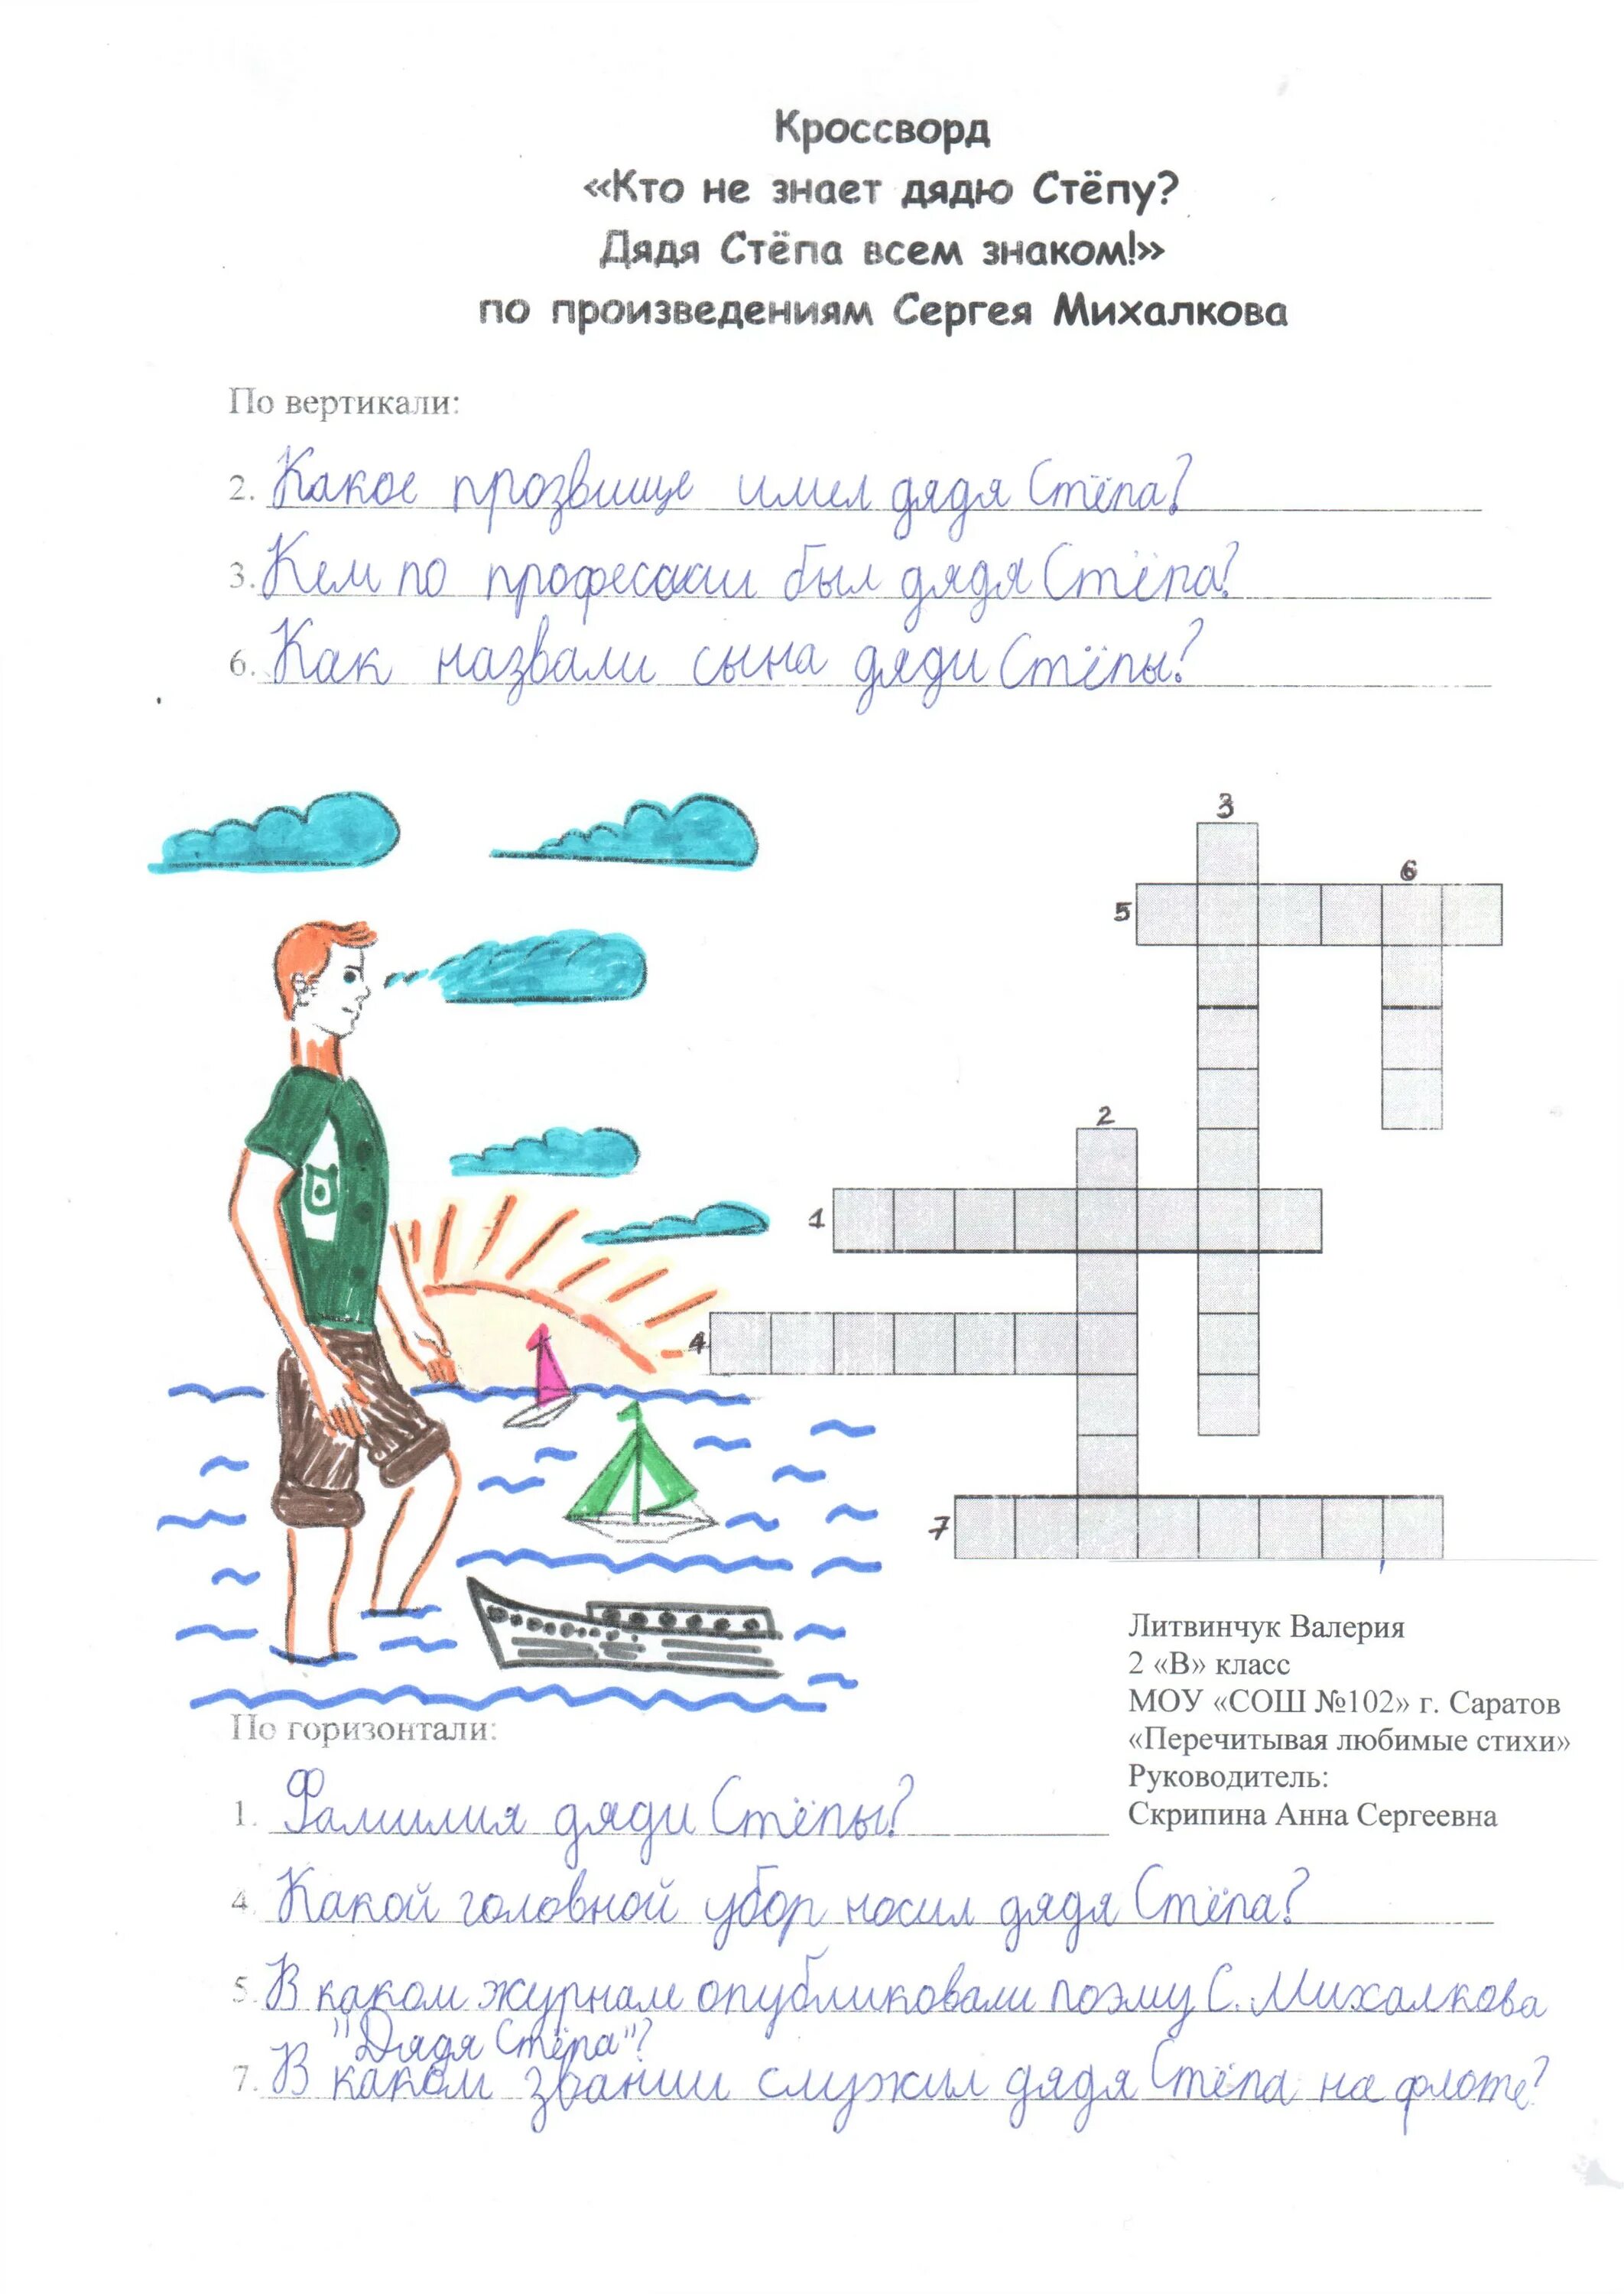 Кроссворд
«Кто не знает дядю Стёпу?
Дядя Стёпа всем знаком!»
по произведениям Сергея Михалкова
По вертикали:
2. Какое прозвище имел дядя Стёпа?
3. Кем по профессии был дядя Стёпа?
6. Как назвали сына дяди Стёпы?
3
6
5
2
1
4
7
Литвинчук Валерия
2 «В» класс
МОУ «СОШ №102» г. Саратов
«Перечитывая любимые стихи»
Руководитель:
Скрипина Анна Сергеевна
По горизонтали:
1. Фамилия дяди Стёпы?
4. Какой головной убор носил дядя Стёпа?
5. В каком журнале опубликовали поэму С. Михалкова
"Дядя Стёпа"?
7. В каком звании служил дядя Стёпа на флоте?